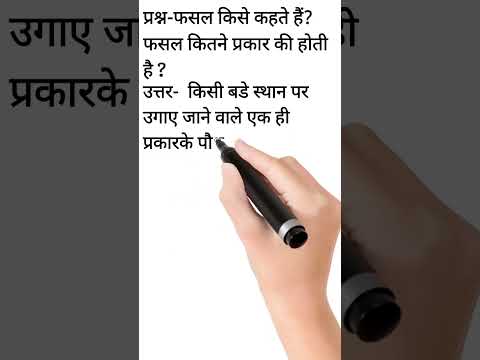 प्रश्न-फसल किसे कहते हैं?
फसल कितने प्रकार की होती
है ?
उत्तर- किसी बडे स्थान पर
उगाए जाने वाले एक ही
प्रकारके पौ
उगाए जा
प्रकारके